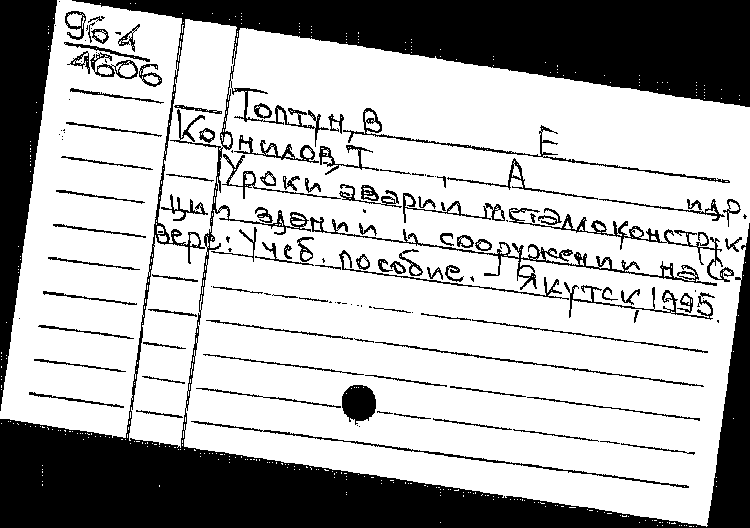 96-4
4606
Топтун, В Е
Корнилов, Т А и др.
Уроки аварий металлоконструк-
ций зданий и сооружений на Се-
вере: Учеб. пособие. – Якутск, 1995.